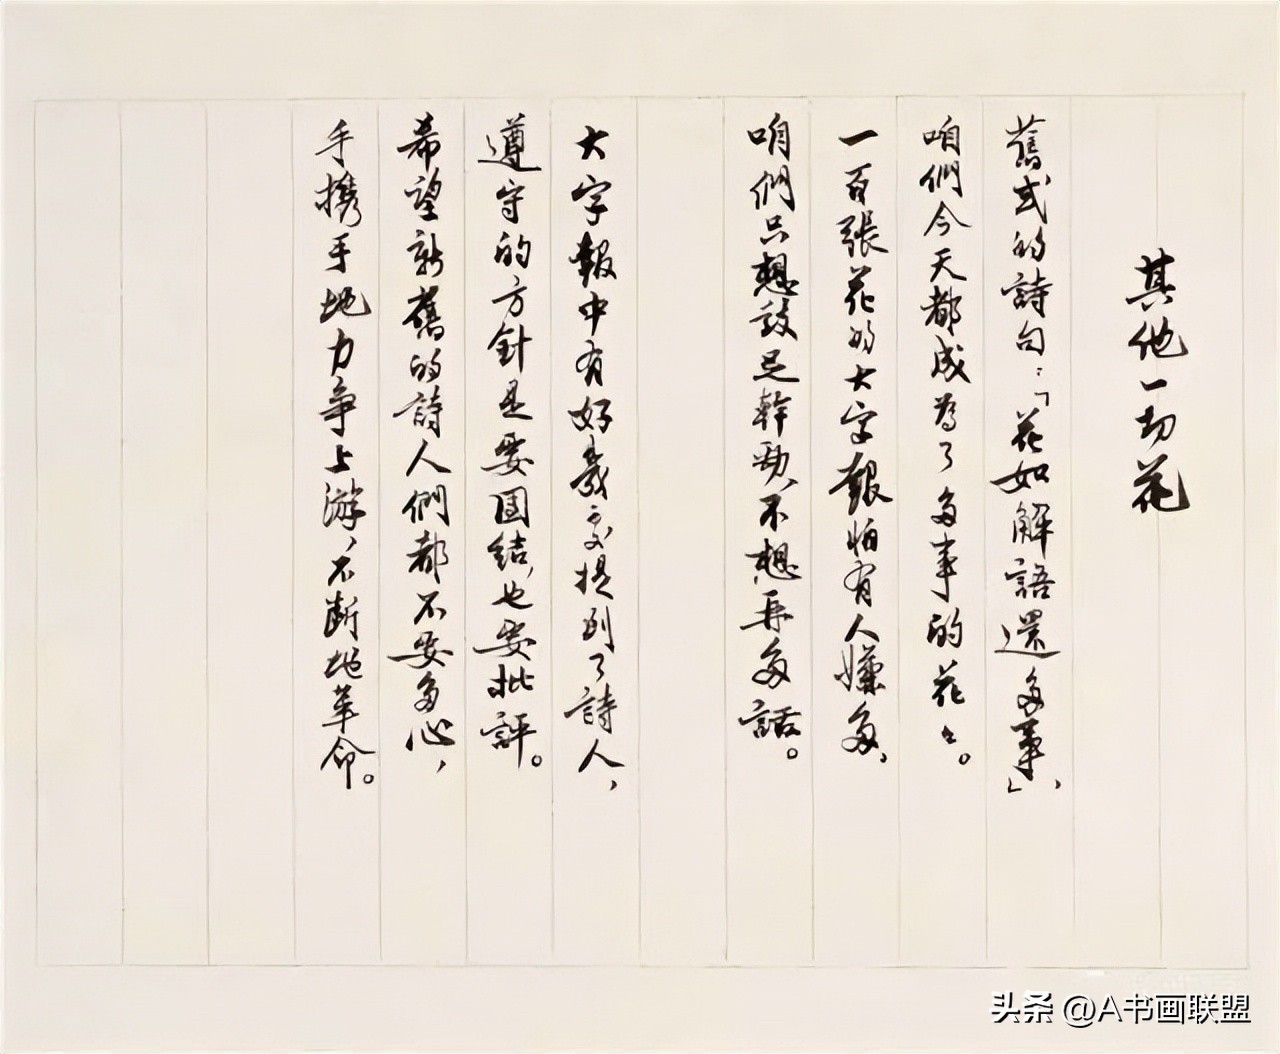 其他一切花
舊式的詩句：「花如解語還多事」，
咱們今天都成為了多事的花々。
一百張花的大字報怕有人嫌多，
咱們只想鼓足幹勁，不想再多話。
大字報中有好幾次提到了詩人，
遵守的方針是要團結，也要批評。
希望新舊的詩人們都不要多心，
手攜手地力爭上游，不斷地革命。
头条 @A书画联盟